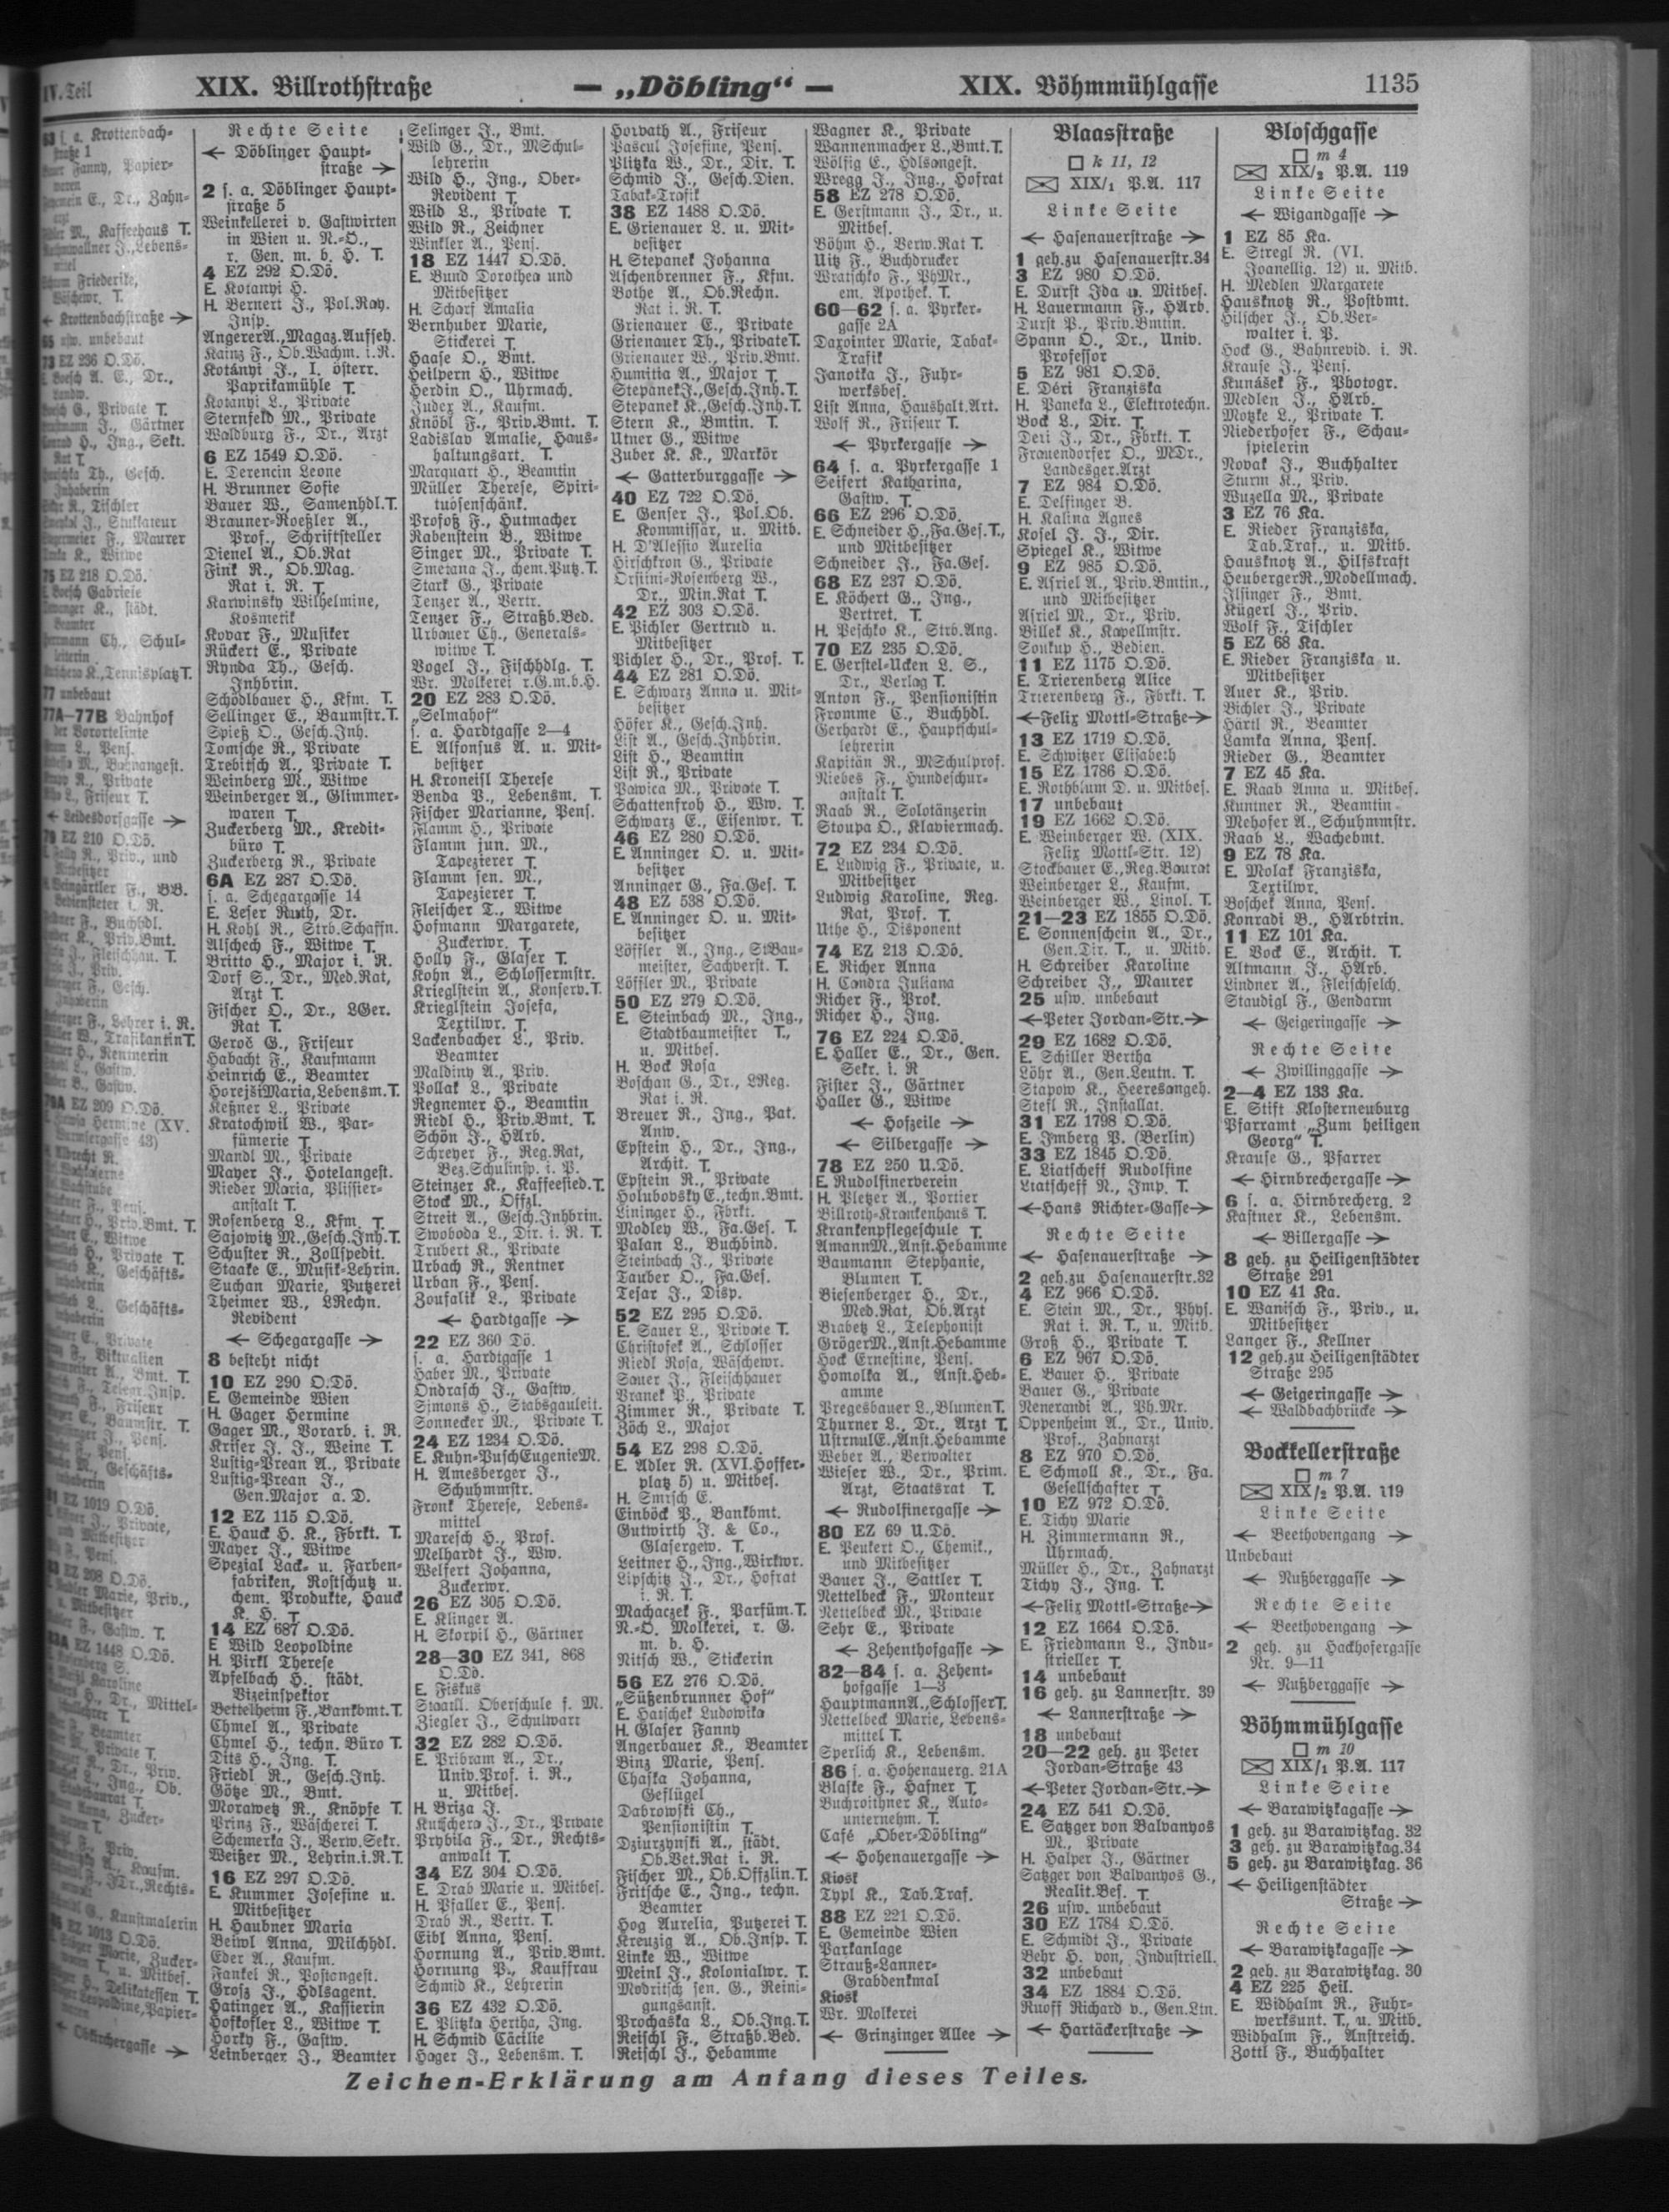 IV. Teil
XIX. Billrothstraße
— „Döbling“ —
XIX. Böhmmühlgasse
1135
63 s. a. Krottenbach-
straße 1
Fanny, Papier-
E., Dr., Zahn-
arzt
M., Kaffeehaus T.
J., Lebens-
mittel
Friederike,
Wäschewr. T.
← Krottenbachstraße →
65 usw. unbebaut
73 EZ 236 O.Dö.
E. Boesch A. E., Dr.,
Landw.
Boesch G., Private T.
J., Gärtner
H., Ing., Sekt.
Rat T.
Th., Gesch.
Inhaberin
R., Tischler
J., Stukkateur
F., Maurer
K., Witwe
75 EZ 218 O.Dö.
E. Boesch Gabriele
K., städt.
Beamter
Ch., Schul-
leiterin
K., Tennisplatz T.
77 unbebaut
77A—77B Bahnhof
der Vorortelinie
L., Pens.
M., Bahnangest.
R., Private
L., Friseur T.
← Leidesdorfgasse →
79 EZ 210 O.Dö.
R., Priv., und
Mitbesitzer
Weingärtler F., BB.
Bediensteter i. R.
F., Buchhdl.
K., Priv.Bmt.
J., Fleischhau. T.
J., Priv.
F., Gesch.
Inhaberin
F., Lehrer i. R.
W., Trafikantin T.
H., Rentnerin
L., Gastw.
B., Gastw.
79A EZ 209 O.Dö.
Hermine (XV.
43)
Albrecht R.
F., Pens.
H., Priv.Bmt. T.
E., Witwe
H., Private T.
K., Geschäfts-
inhaberin
L., Geschäfts-
inhaberin
E., Private
F., Viktualien
A., Bmt. T.
F., Telegr.Insp.
F., Friseur
E., Baumstr. T.
J., Pens.
F., Pens.
M., Geschäfts-
inhaberin
81 EZ 1019 O.Dö.
J., Private,
und Mitbesitzer
F., Pens.
83 EZ 208 O.Dö.
Marie, Priv.,
u. Mitbesitzer
F., Gastw. T.
83A EZ 1448 O.Dö.
S.
Karoline
H., Dr., Mittel-
schullehrer T.
F., Beamter
M., Private T.
R., Dr., Priv.
L., Ing., Ob.
Stadtbaurat T.
Anna, Zucker-
waren T.
F., Priv.
A., Kaufm.
J., JDr., Rechts-
anwalt
G., Kunstmalerin
85 EZ 1013 O.Dö.
Marie, Zucker-
waren T., u. Mitbes.
H., Delikatessen T.
Leopoldine, Papier-
waren
← Obkirchergasse →
Rechte Seite
← Döblinger Haupt-
straße →
2 s. a. Döblinger Haupt-
straße 5
Weinkellerei v. Gastwirten
in Wien u. N.-O.,
r. Gen. m. b. H. T.
4 EZ 292 O.Dö.
E. Kotanyi H.
H. Bernert J., Pol.Ray.
Insp.
Angerer A., Magaz.Aufseh.
Kainz F., Ob.Wachm. i. R.
Kotányi J., I. österr.
Paprikamühle T.
Kotanyi L., Private
Sternfeld M., Private
Waldburg F., Dr., Arzt
6 EZ 1549 O.Dö.
E. Derencin Leone
H. Brunner Sofie
Bauer W., Samenhdl. T.
Brauner-Roeßler A.,
Prof., Schriftsteller
Dienel A., Ob.Rat
Fink R., Ob.Mag.
Rat i. R. T.
Karwinsky Wilhelmine,
Kosmetik
Kovar F., Musiker
Rückert E., Private
Rynda Th., Gesch.
Inhbrin.
Schödlbauer H., Kfm. T.
Sellinger E., Baumstr. T.
Spieß O., Gesch.Inh.
Tomsche R., Private
Trebitsch A., Private T.
Weinberg M., Witwe
Weinberger A., Glimmer-
waren T.
Zuckerberg M., Kredit-
büro T.
Zuckerberg R., Private
6A EZ 287 O.Dö.
s. a. Schegargasse 14
E. Leser Ruth, Dr.
H. Kohl R., Strb.Schaffn.
Alschech F., Witwe T.
Britto H., Major i. R.
Dorf S., Dr., Med.Rat,
Arzt T.
Fischer O., Dr., LGer.
Rat T.
Geroč G., Friseur
Habacht F., Kaufmann
Heinrich E., Beamter
Horejsi Maria, Lebensm. T.
Keßner L., Private
Kratochwil W., Par-
fümerie T.
Mandl M., Private
Mayer J., Hotelangest.
Rieder Maria, Plissier-
anstalt T.
Rosenberg L., Kfm. T.
Sajowitz M., Gesch.Inh. T.
Schuster R., Zollspedit.
Staake E., Musik-Lehrin.
Suchan Marie, Putzerei
Theimer W., LRechn.
Revident
← Schegargasse →
8 besteht nicht
10 EZ 290 O.Dö.
E. Gemeinde Wien
H. Gager Hermine
Gager M., Vorarb. i. R.
Kriser J. J., Weine T.
Lustig-Prean A., Private
Lustig-Prean J.,
Gen.Major a. D.
12 EZ 115 O.Dö.
E. Hauck H. K., Fbrkt. T.
Mayer J., Witwe
Spezial Lack- u. Farben-
fabriken, Rostschutz u.
chem. Produkte, Hauck
K. H. T.
14 EZ 687 O.Dö.
E Wild Leopoldine
H. Pirkl Therese
Apfelbach H., städt.
Vizeinspektor
Bettelheim F., Bankbmt. T.
Chmel A., Private
Chmel H., techn. Büro T.
Dits H., Ing. T.
Friedl R., Gesch.Inh.
Götze M., Bmt.
Morawetz R., Knöpfe T.
Prinz F., Wäscherei T.
Schemerka J., Verw.Sekr.
Weißer M., Lehrin. i. R. T.
16 EZ 297 O.Dö.
E. Kummer Josefine u.
Mitbesitzer
H. Haubner Maria
Beiwl Anna, Milchhdl.
Eder A., Kaufm.
Fankel R., Postangest.
Grosz J., Hdlsagent.
Hatinger A., Kassierin
Hofkofler L., Witwe T.
Horky F., Gastw.
Leinberger J., Beamter
Selinger J., Bmt.
Wild G., Dr., MSchul-
lehrerin
Wild H., Ing., Ober-
Revident T.
Wild L., Private T.
Wild R., Zeichner
Winkler A., Pens.
18 EZ 1447 O.Dö.
E. Bund Dorothea und
Mitbesitzer
H. Scharf Amalia
Bernhuber Marie,
Stickerei T.
Haase O., Bmt.
Heilpern H., Witwe
Herdin O., Uhrmach.
Judex A., Kaufm.
Knöbl F., Priv.Bmt. T.
Ladislav Amalie, Haus-
haltungsart. T.
Marquart H., Beamtin
Müller Therese, Spiri-
tuosenschänk.
Profoß F., Hutmacher
Rabenstein B., Witwe
Singer M., Private T.
Smetana J., chem.Putz. T.
Stark G., Private
Tenzer A., Vertr.
Tenzer F., Straßb.Bed.
Urbauer Ch., Generals-
witwe T.
Vogel J., Fischhdlg. T.
Wr. Molkerei r.G.m.b.H.
20 EZ 283 O.Dö.
„Selmahof“
s. a. Hardtgasse 2—4
E. Alfonsus A. u. Mit-
besitzer
H. Kroneisl Therese
Benda P., Lebensm. T.
Fischer Marianne, Pens.
Flamm H., Private
Flamm jun. M.,
Tapezierer T.
Flamm sen. M.,
Tapezierer T.
Fleischer T., Witwe
Hofmann Margarete,
Zuckerwr. T.
Holly F., Glaser T.
Kohn A., Schlossermstr.
Krieglstein A., Konserv. T.
Krieglstein Josefa,
Textilwr. T.
Lackenbacher L., Priv.
Beamter
Maldiny A., Priv.
Pollak L., Private
Regnemer H., Beamtin
Riedl H., Priv.Bmt. T.
Schön J., HArb.
Schreyer F., Reg.Rat,
Bez.Schulinsp. i. P.
Steinzer K., Kaffeesied. T.
Stock M., Offzl.
Streit A., Gesch.Inhbrin.
Swoboda L., Dir. i. R. T.
Trubert K., Private
Urbach R., Rentner
Urban F., Pens.
Zoufalik L., Private
← Hardtgasse →
22 EZ 360 Dö.
s. a. Hardtgasse 1
Haber M., Private
Ondrasch J., Gastw.
Simons H., Stabsgauleit.
Sonnecker M., Private T.
24 EZ 1234 O.Dö.
E. Kuhn-Pusch Eugenie M.
H. Amesberger J.,
Schuhmmstr.
Fronk Therese, Lebens-
mittel
Maresch H., Prof.
Melhardt J., Ww.
Welfert Johanna,
Zuckerwr.
26 EZ 305 O.Dö.
E. Klinger A.
H. Skorpil H., Gärtner
28—30 EZ 341, 868
O.Dö.
E. Fiskus
Staatl. Oberschule f. M.
Ziegler J., Schulwart
32 EZ 282 O.Dö.
E. Pribram A., Dr.,
Univ.Prof. i. R.,
u. Mitbes.
H. Briza J.
Kutschera J., Dr., Private
Prybila F., Dr., Rechts-
anwalt T.
34 EZ 304 O.Dö.
E. Drab Marie u. Mitbes.
H. Pfaller E., Pens.
Drab R., Vertr. T.
Eibl Anna, Pens.
Hornung A., Priv.Bmt.
Hornung P., Kauffrau
Schmid K., Lehrerin
36 EZ 432 O.Dö.
E. Plitzka Hertha, Ing.
H. Schmid Cäcilie
Hager J., Lebensm. T.
Horvath A., Friseur
Pascul Josefine, Pens.
Plitzka W., Dr., Dir. T.
Schmid J., Gesch.Dien.
Tabak-Trafik
38 EZ 1488 O.Dö.
E. Grienauer L. u. Mit-
besitzer
H. Stepanek Johanna
Aschenbrenner F., Kfm.
Bothe A., Ob.Rechn.
Rat i. R. T.
Grienauer E., Private
Grienauer Th., Private T.
Grienauer W., Priv.Bmt.
Humitia A., Major T.
Stepanek J., Gesch.Inh. T.
Stepanek K., Gesch.Inh. T.
Stern K., Bmtin. T.
Utner G., Witwe
Zuber K. K., Markör
← Gatterburggasse →
40 EZ 722 O.Dö.
E. Genser J., Pol.Ob.
Kommissär, u. Mitb.
H. D'Alessio Aurelia
Hirschkron G., Private
Orsini-Rosenberg W.,
Dr., Min.Rat T.
42 EZ 303 O.Dö.
E. Pichler Gertrud u.
Mitbesitzer
Pichler H., Dr., Prof. T.
44 EZ 281 O.Dö.
E. Schwarz Anna u. Mit-
besitzer
Höfer K., Gesch.Inh.
List A., Gesch.Inhbrin.
List H., Beamtin
List R., Private
Pawica M., Private T.
Schattenfroh H., Ww. T.
Schwarz E., Eisenwr. T.
46 EZ 280 O.Dö.
E. Anninger O. u. Mit-
besitzer
Anninger G., Fa.Ges. T.
48 EZ 538 O.Dö.
E. Anninger O. u. Mit-
besitzer
Löffler A., Ing., StBau-
meister, Sachverst. T.
Löffler M., Private
50 EZ 279 O.Dö.
E. Steinbach M., Ing.,
Stadtbaumeister T.,
u. Mitbes.
H. Bock Rosa
Boschan G., Dr., LReg.
Rat i. R.
Breuer R., Ing., Pat.
Anw.
Epstein H., Dr., Ing.,
Archit. T.
Epstein R., Private
Holubovsky E., techn.Bmt.
Lininger H., Fbrkt.
Modley W., Fa.Ges. T.
Palan L., Buchbind.
Steinbach J., Private
Tauber O., Fa.Ges.
Tesar J., Disp.
52 EZ 295 O.Dö.
E. Sauer L., Private T.
Christofek A., Schlosser
Riedl Rosa, Wäschewr.
Sauer J., Fleischhauer
Vranek P., Private
Zimmer R., Private T.
Zöch L., Major
54 EZ 298 O.Dö.
E. Adler R. (XVI. Hoffer-
platz 5) u. Mitbes.
H. Smrsch E.
Einböck P., Bankbmt.
Gutwirth J. & Co.,
Glasergew. T.
Leitner H., Ing., Wirkwr.
Lipschitz J., Dr., Hofrat
i. R. T.
Machaczek F., Parfüm. T.
N.-O. Molkerei, r. G.
m. b. H.
Nitsch W., Stickerin
56 EZ 276 O.Dö.
„Süßenbrunner Hof“
E. Hatschek Ludowika
H. Glaser Fanny
Angerbauer K., Beamter
Binz Marie, Pens.
Chaska Johanna,
Geflügel
Dabrowski Ch.,
Pensionistin T.
Dziurzynski A., städt.
Ob.Vet.Rat i. R.
Fischer M., Ob.Offzlin. T.
Fritsche E., Ing., techn.
Beamter
Hog Aurelia, Putzerei T.
Kreuzig A., Ob.Insp. T.
Linke W., Witwe
Meinl J., Kolonialwr. T.
Modritsch sen. G., Reini-
gungsanst.
Prochaska L., Ob.Ing. T.
Reischl F., Straßb.Bed.
Reischl J., Hebamme
Wagner K., Private
Wannenmacher L., Bmt. T.
Wölfig E., Hdlsangest.
Wregg J., Ing., Hofrat
58 EZ 278 O.Dö.
E. Gerstmann J., Dr., u.
Mitbes.
Böhm H., Verw.Rat T.
Uitz F., Buchdrucker
Wratschko F., PhMr.,
em. Apothek. T.
60—62 s. a. Pyrker-
gasse 2A
Daxointer Marie, Tabak-
Trafik
Janotka J., Fuhr-
werksbes.
List Anna, Haushalt.Art.
Wolf R., Friseur T.
← Pyrkergasse →
64 s. a. Pyrkergasse 1
Seifert Katharina,
Gastw. T.
66 EZ 296 O.Dö.
E. Schneider H., Fa.Ges. T.,
und Mitbesitzer
Schneider J., Fa.Ges.
68 EZ 237 O.Dö.
E. Köchert G., Ing.,
Vertret. T.
H. Peschko K., Strb.Ang.
70 EZ 235 O.Dö.
E. Gerstel-Ucken L. S.,
Dr., Verlag T.
Anton F., Pensionistin
Fromme C., Buchhdl.
Gerhardt E., Hauptschul-
lehrerin
Kapitän R., MSchulprof.
Niebes F., Hundeschur-
anstalt T.
Raab R., Solotänzerin
Stoupa O., Klaviermach.
72 EZ 234 O.Dö.
E. Ludwig F., Private, u.
Mitbesitzer
Ludwig Karoline, Reg.
Rat, Prof. T.
Uthe H., Disponent
74 EZ 213 O.Dö.
E. Richer Anna
H. Candra Juliana
Richer F., Prok.
Richer H., Ing.
76 EZ 224 O.Dö.
E. Haller E., Dr., Gen.
Sekr. i. R
Fister J., Gärtner
Haller G., Witwe
← Hofzeile →
← Silbergasse →
78 EZ 250 U.Dö.
E. Rudolfinerverein
H. Pletzer A., Portier
Billroth-Krankenhaus T.
Krankenpflegeschule T.
Amann M., Anst.Hebamme
Baumann Stephanie,
Blumen T.
Biesenberger H., Dr.,
Med.Rat, Ob.Arzt
Brabetz L., Telephonist
Gröger M., Anst.Hebamme
Hock Ernestine, Pens.
Homolka A., Anst.Heb-
amme
Pregesbauer L., Blumen T.
Thurner L., Dr., Arzt T.
Ustrnul E., Anst.Hebamme
Weber A., Verwalter
Wieser W., Dr., Prim.
Arzt, Staatsrat T.
← Rudolfinergasse →
80 EZ 69 U.Dö.
E. Peukert O., Chemik.,
und Mitbesitzer
Bauer J., Sattler T.
Nettelbeck F., Monteur
Nettelbeck M., Private
Sehr E., Private
← Zehenthofgasse →
82—84 s. a. Zehent-
hofgasse 1—3
Hauptmann A., Schlosser T.
Nettelbeck Marie, Lebens-
mittel T.
Sperlich K., Lebensm.
86 s. a. Hohenauerg. 21A
Blaske F., Hafner T.
Buchroithner K., Auto-
unternehm. T.
Café „Ober-Döbling“
← Hohenauergasse →
Kiosk
Typl K., Tab.Traf.
88 EZ 221 O.Dö.
E. Gemeinde Wien
Parkanlage
Strauß-Lanner-
Grabdenkmal
Kiosk
Wr. Molkerei
← Grinzinger Allee →
Blaasstraße
k 11, 12
XIX/1 P.A. 117
Linke Seite
← Hasenauerstraße →
1 geh.zu Hasenauerstr.34
3 EZ 980 O.Dö.
E. Durst Ida u. Mitbes.
H. Lauermann F., HArb.
Durst P., Priv.Bmtin.
Spann O., Dr., Univ.
Professor
5 EZ 981 O.Dö.
E. Déri Franziska
H. Paneka L., Elektrotechn.
Bock L., Dir. T.
Deri J., Dr., Fbrkt. T.
Frauendorfer O., MDr.,
Landesger.Arzt
7 EZ 984 O.Dö.
E. Delfinger B.
H. Kalina Agnes
Kosel J. J., Dir.
Spiegel K., Witwe
9 EZ 985 O.Dö.
E. Asriel A., Priv.Bmtin.,
und Mitbesitzer
Asriel M., Dr., Priv.
Billek K., Kapellmstr.
Soukup H., Bedien.
11 EZ 1175 O.Dö.
E. Trierenberg Alice
Trierenberg F., Fbrkt. T.
← Felix Mottl-Straße →
13 EZ 1719 O.Dö.
E. Schwitzer Elisabeth
15 EZ 1786 O.Dö.
E. Rothblum D. u. Mitbes.
17 unbebaut
19 EZ 1662 O.Dö.
E. Weinberger W. (XIX.
Felix Mottl-Str. 12)
Stockbauer E., Reg.Baurat
Weinberger L., Kaufm.
Weinberger W., Linol. T.
21—23 EZ 1855 O.Dö.
E. Sonnenschein A., Dr.,
Gen.Dir. T., u. Mitb.
H. Schreiber Karoline
Schreiber J., Maurer
25 usw. unbebaut
← Peter Jordan-Str. →
29 EZ 1682 O.Dö.
E. Schiller Bertha
Löhr A., Gen.Leutn. T.
Stapow K., Heeresangeh.
Stefl R., Installat.
31 EZ 1798 O.Dö.
E. Imberg P. (Berlin)
33 EZ 1845 O.Dö.
E. Liatscheff Rudolfine
Liatscheff N., Imp. T.
← Hans Richter-Gasse →
Rechte Seite
← Hasenauerstraße →
2 geh.zu Hasenauerstr.32
4 EZ 966 O.Dö.
E. Stein M., Dr., Phys.
Rat i. R. T., u. Mitb.
Groß H., Private T.
6 EZ 967 O.Dö.
E. Bauer H., Private
Bauer G., Private
Nenerandi A., Ph.Mr.
Oppenheim A., Dr., Univ.
Prof., Zahnarzt
8 EZ 970 O.Dö.
E. Schmoll K., Dr., Fa.
Gesellschafter T.
10 EZ 972 O.Dö.
E. Tichy Marie
H. Zimmermann R.,
Uhrmach.
Müller H., Dr., Zahnarzt
Tichy J., Ing. T.
← Felix Mottl-Straße →
12 EZ 1664 O.Dö.
E. Friedmann L., Indu-
strieller T.
14 unbebaut
16 geh. zu Lannerstr. 39
← Lannerstraße →
18 unbebaut
20—22 geh. zu Peter
Jordan-Straße 43
← Peter Jordan-Str. →
24 EZ 541 O.Dö.
E. Satzger von Balvanyos
M., Private
H. Halper J., Gärtner
Satzger von Balvanyos G.,
Realit.Bes. T.
26 usw. unbebaut
30 EZ 1784 O.Dö.
E. Schmidt J., Private
Behr H. von, Industriell.
32 unbebaut
34 EZ 1884 O.Dö.
Ruoff Richard v., Gen.Ltn.
← Hartäckerstraße →
Bloschgasse
m 4
XIX/2 P.A. 119
Linke Seite
← Wigandgasse →
1 EZ 85 Ka.
E. Stregl R. (VI.
Joanellig. 12) u. Mitb.
H. Medlen Margarete
Hausknotz R., Postbmt.
Hilscher J., Ob.Ver-
walter i. P.
Hock G., Bahnrevid. i. R.
Krause J., Pens.
Kunášek F., Photogr.
Medlen J., HArb.
Motzke L., Private T.
Niederhofer F., Schau-
spielerin
Novak J., Buchhalter
Sturm K., Priv.
Wuzella M., Private
3 EZ 76 Ka.
E. Rieder Franziska,
Tab.Traf., u. Mitb.
Hausknotz A., Hilfskraft
Heuberger R., Modellmach.
Ilsinger F., Bmt.
Kügerl J., Priv.
Wolf F., Tischler
5 EZ 68 Ka.
E. Rieder Franziska u.
Mitbesitzer
Auer K., Priv.
Bichler J., Private
Härtl R., Beamter
Lamka Anna, Pens.
Rieder G., Beamter
7 EZ 45 Ka.
E. Raab Anna u. Mitbes.
Kuntner R., Beamtin
Mehofer A., Schuhmmstr.
Raab L., Wachebmt.
9 EZ 78 Ka.
E. Molak Franziska,
Textilwr.
Boschek Anna, Pens.
Konradi B., HArbtrin.
11 EZ 101 Ka.
E. Bock E., Archit. T.
Altmann J., HArb.
Lindner A., Fleischselch.
Staudigl F., Gendarm
← Geigeringasse →
Rechte Seite
← Zwillinggasse →
2—4 EZ 133 Ka.
E. Stift Klosterneuburg
Pfarramt „Zum heiligen
Georg“ T.
Krause G., Pfarrer
← Hirnbrechergasse →
6 s. a. Hirnbrecherg. 2
Kastner K., Lebensm.
← Billergasse →
8 geh. zu Heiligenstädter
Straße 291
10 EZ 41 Ka.
E. Wanisch F., Priv., u.
Mitbesitzer
Langer F., Kellner
12 geh.zu Heiligenstädter
Straße 295
← Geigeringasse →
← Waldbachbrücke →
Bockkellerstraße
m 7
XIX/2 P.A. 119
Linke Seite
← Beethovengang →
Unbebaut
← Nußberggasse →
Rechte Seite
← Beethovengang →
2 geh. zu Hackhofergasse
Nr. 9—11
← Nußberggasse →
Böhmmühlgasse
m 10
XIX/1 P.A. 117
Linke Seite
← Barawitzkagasse →
1 geh. zu Barawitzkag. 32
3 geh. zu Barawitzkag.34
5 geh. zu Barawitzkag. 36
← Heiligenstädter
Straße →
Rechte Seite
← Barawitzkagasse →
2 geh. zu Barawitzkag. 30
4 EZ 225 Heil.
E. Widhalm R., Fuhr-
werksunt. T., u. Mitb.
Widhalm F., Anstreich.
Zottl F., Buchhalter
Zeichen-Erklärung am Anfang dieses Teiles.